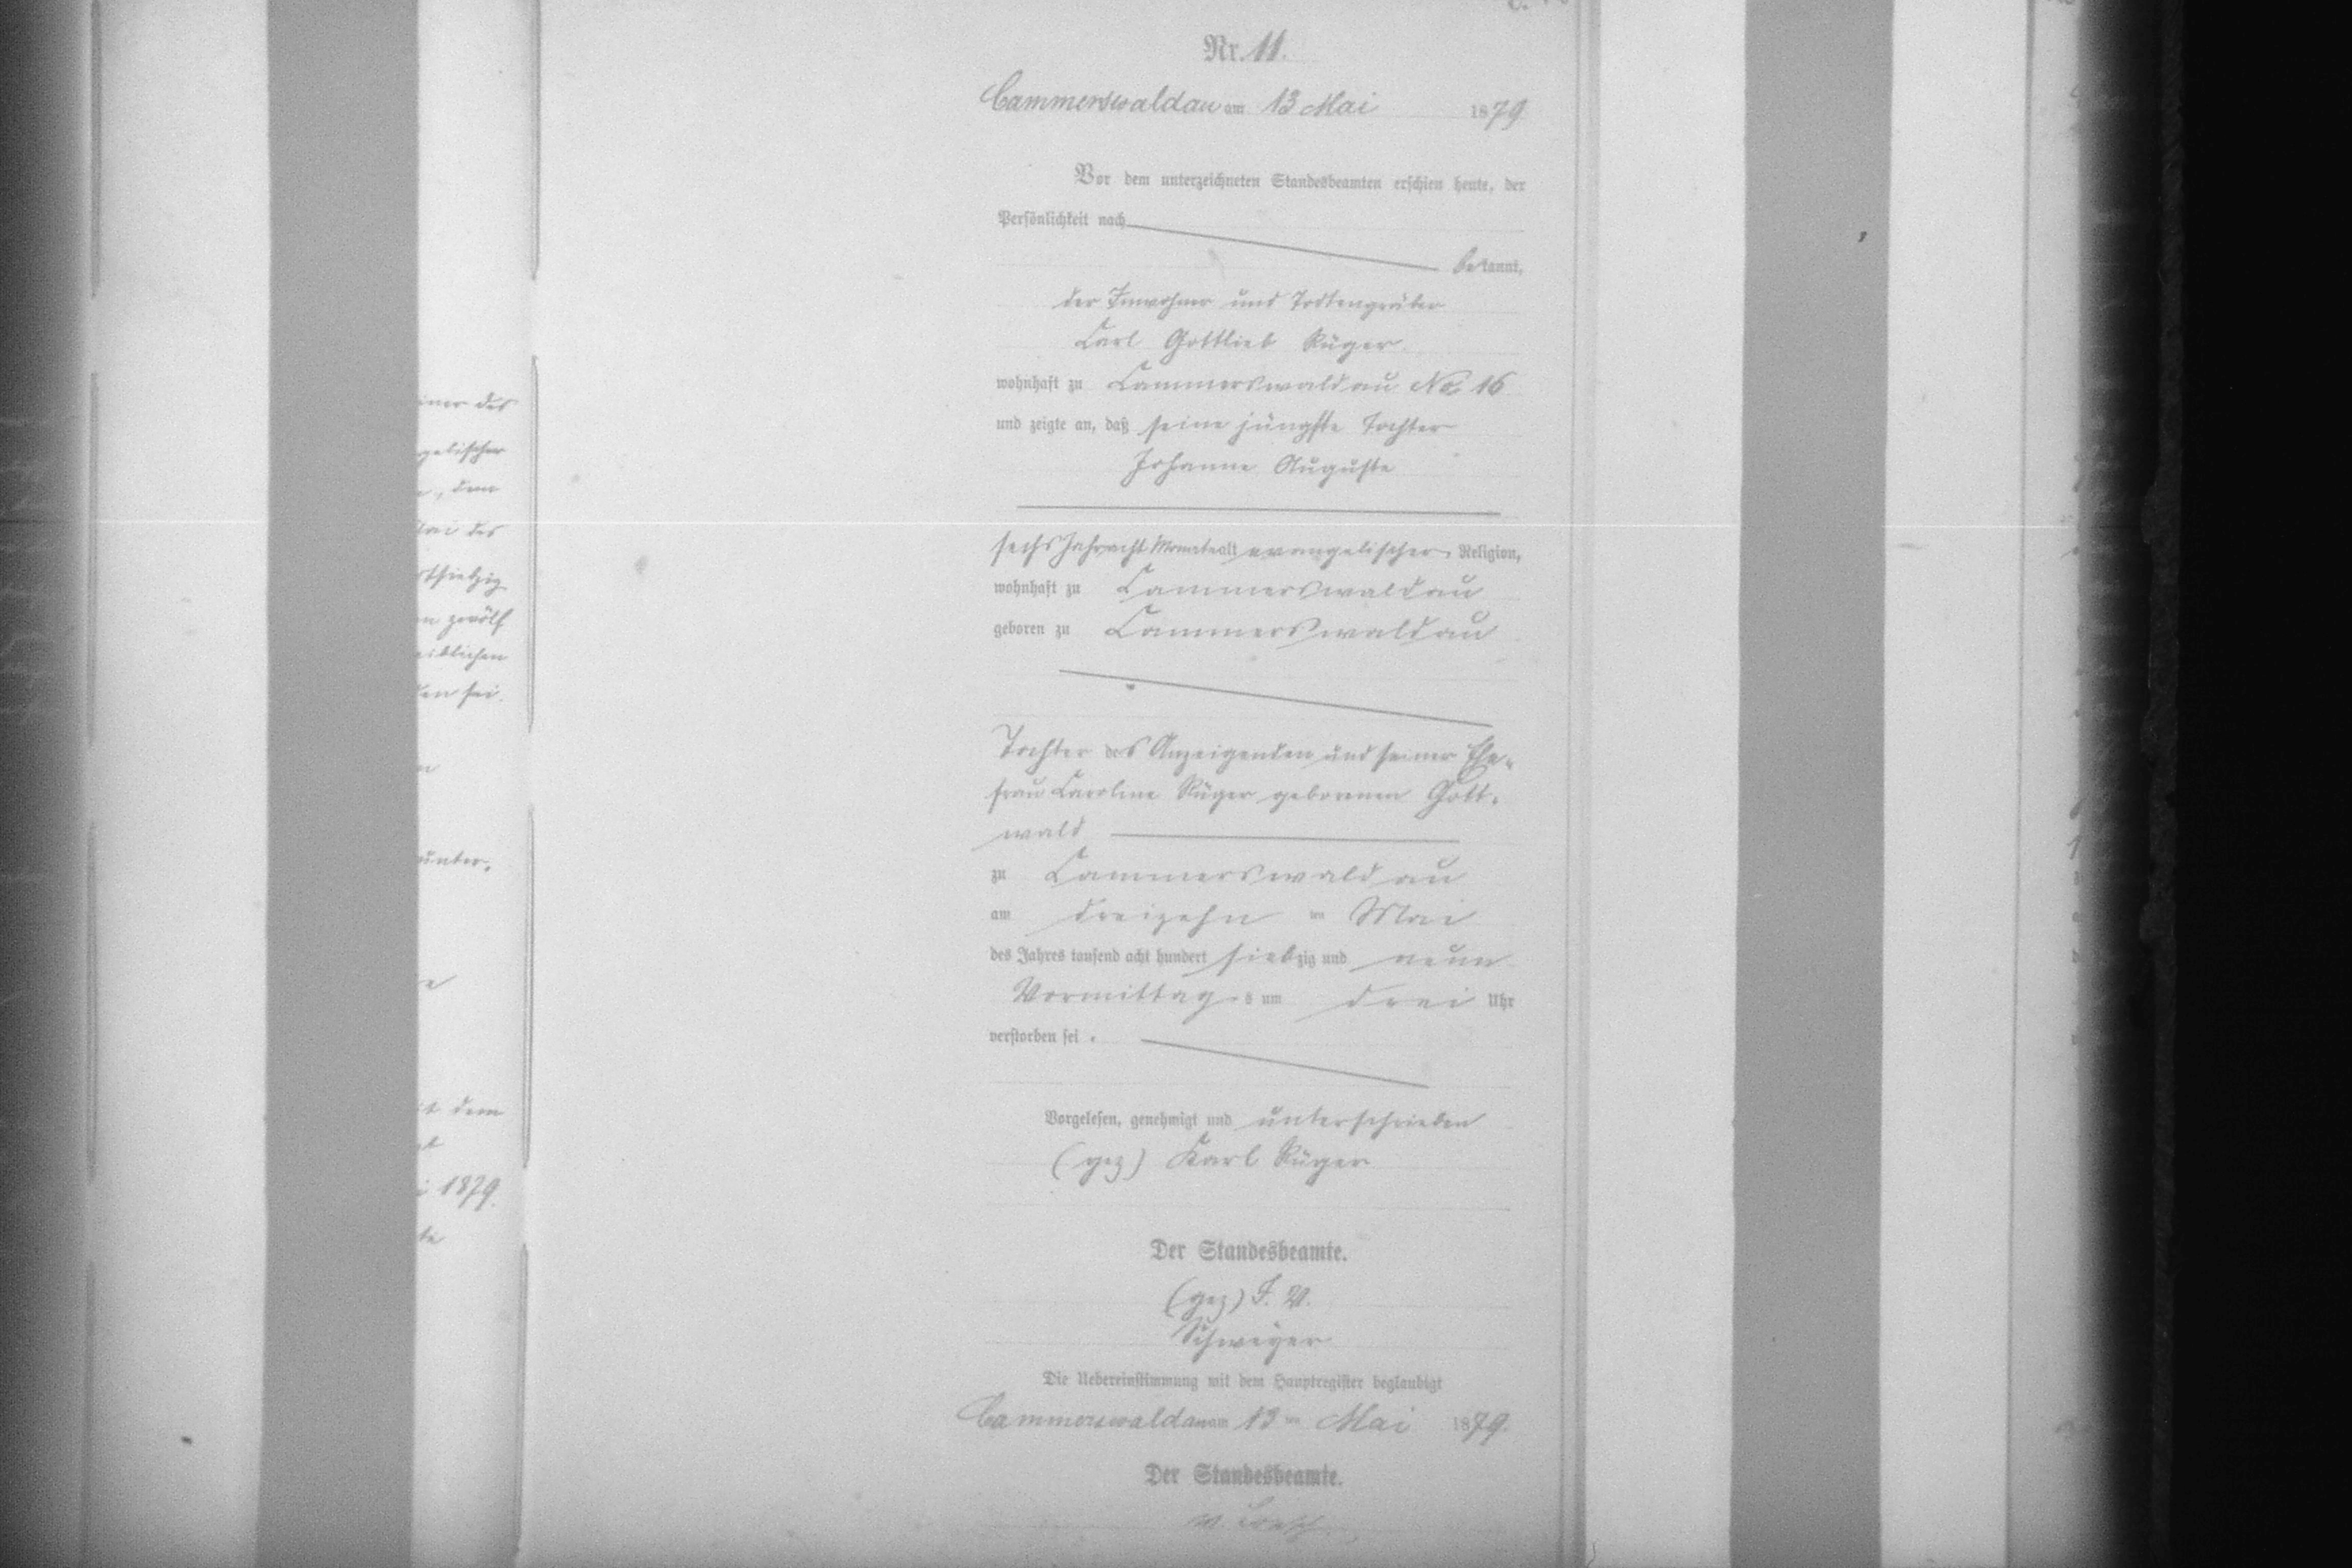 Nr. 11.
Cammerswaldau am 13 Mai 1879
Vor dem unterzeichneten Standesbeamten erschien heute, der
Persönlichkeit nach
bekannt,
der Inwohner und Todtengräber
Carl Gottlieb Rüger
wohnhaft zu Cammerswaldau No. 16
und zeigte an, daß seine jüngste Tochter
Johanne Auguste
sechs Jahr acht Monate alt evangelischer Religion,
wohnhaft zu Cammerswaldau
geboren zu Cammerswaldau
Tochter des Anzeigenden und seiner Ehe-
frau Caroline Rüger geborenen Gott-
wald
zu Cammerswaldau
am dreizehnten Mai
des Jahres tausend acht hundert siebzig und neun
Vormittags um drei Uhr
verstorben sei.
Vorgelesen, genehmigt und unterschrieben
(gez) Karl Rüger
Der Standesbeamte.
(gez) I. V.
Schweyer
Die Uebereinstimmung mit dem Hauptregister beglaubigt
Cammerswaldau am 13ten Mai 1879.
Der Standesbeamte.
iner des
gelischer
dem
Mai des
zwölf
eiblichen
den sei.
unter-
it dem
i 1879.
te